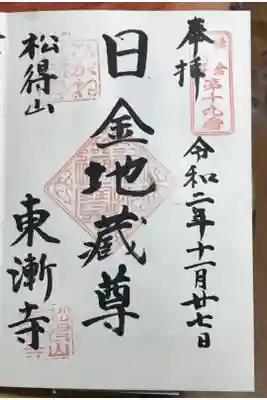 奉拝
鎌倉
第十九番
令和二年十一月廿七日
日金地蔵尊
松得山
東漸寺